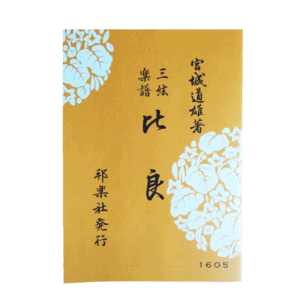 宮城道雄著
三絃
楽譜
比良
邦楽社発行
1605